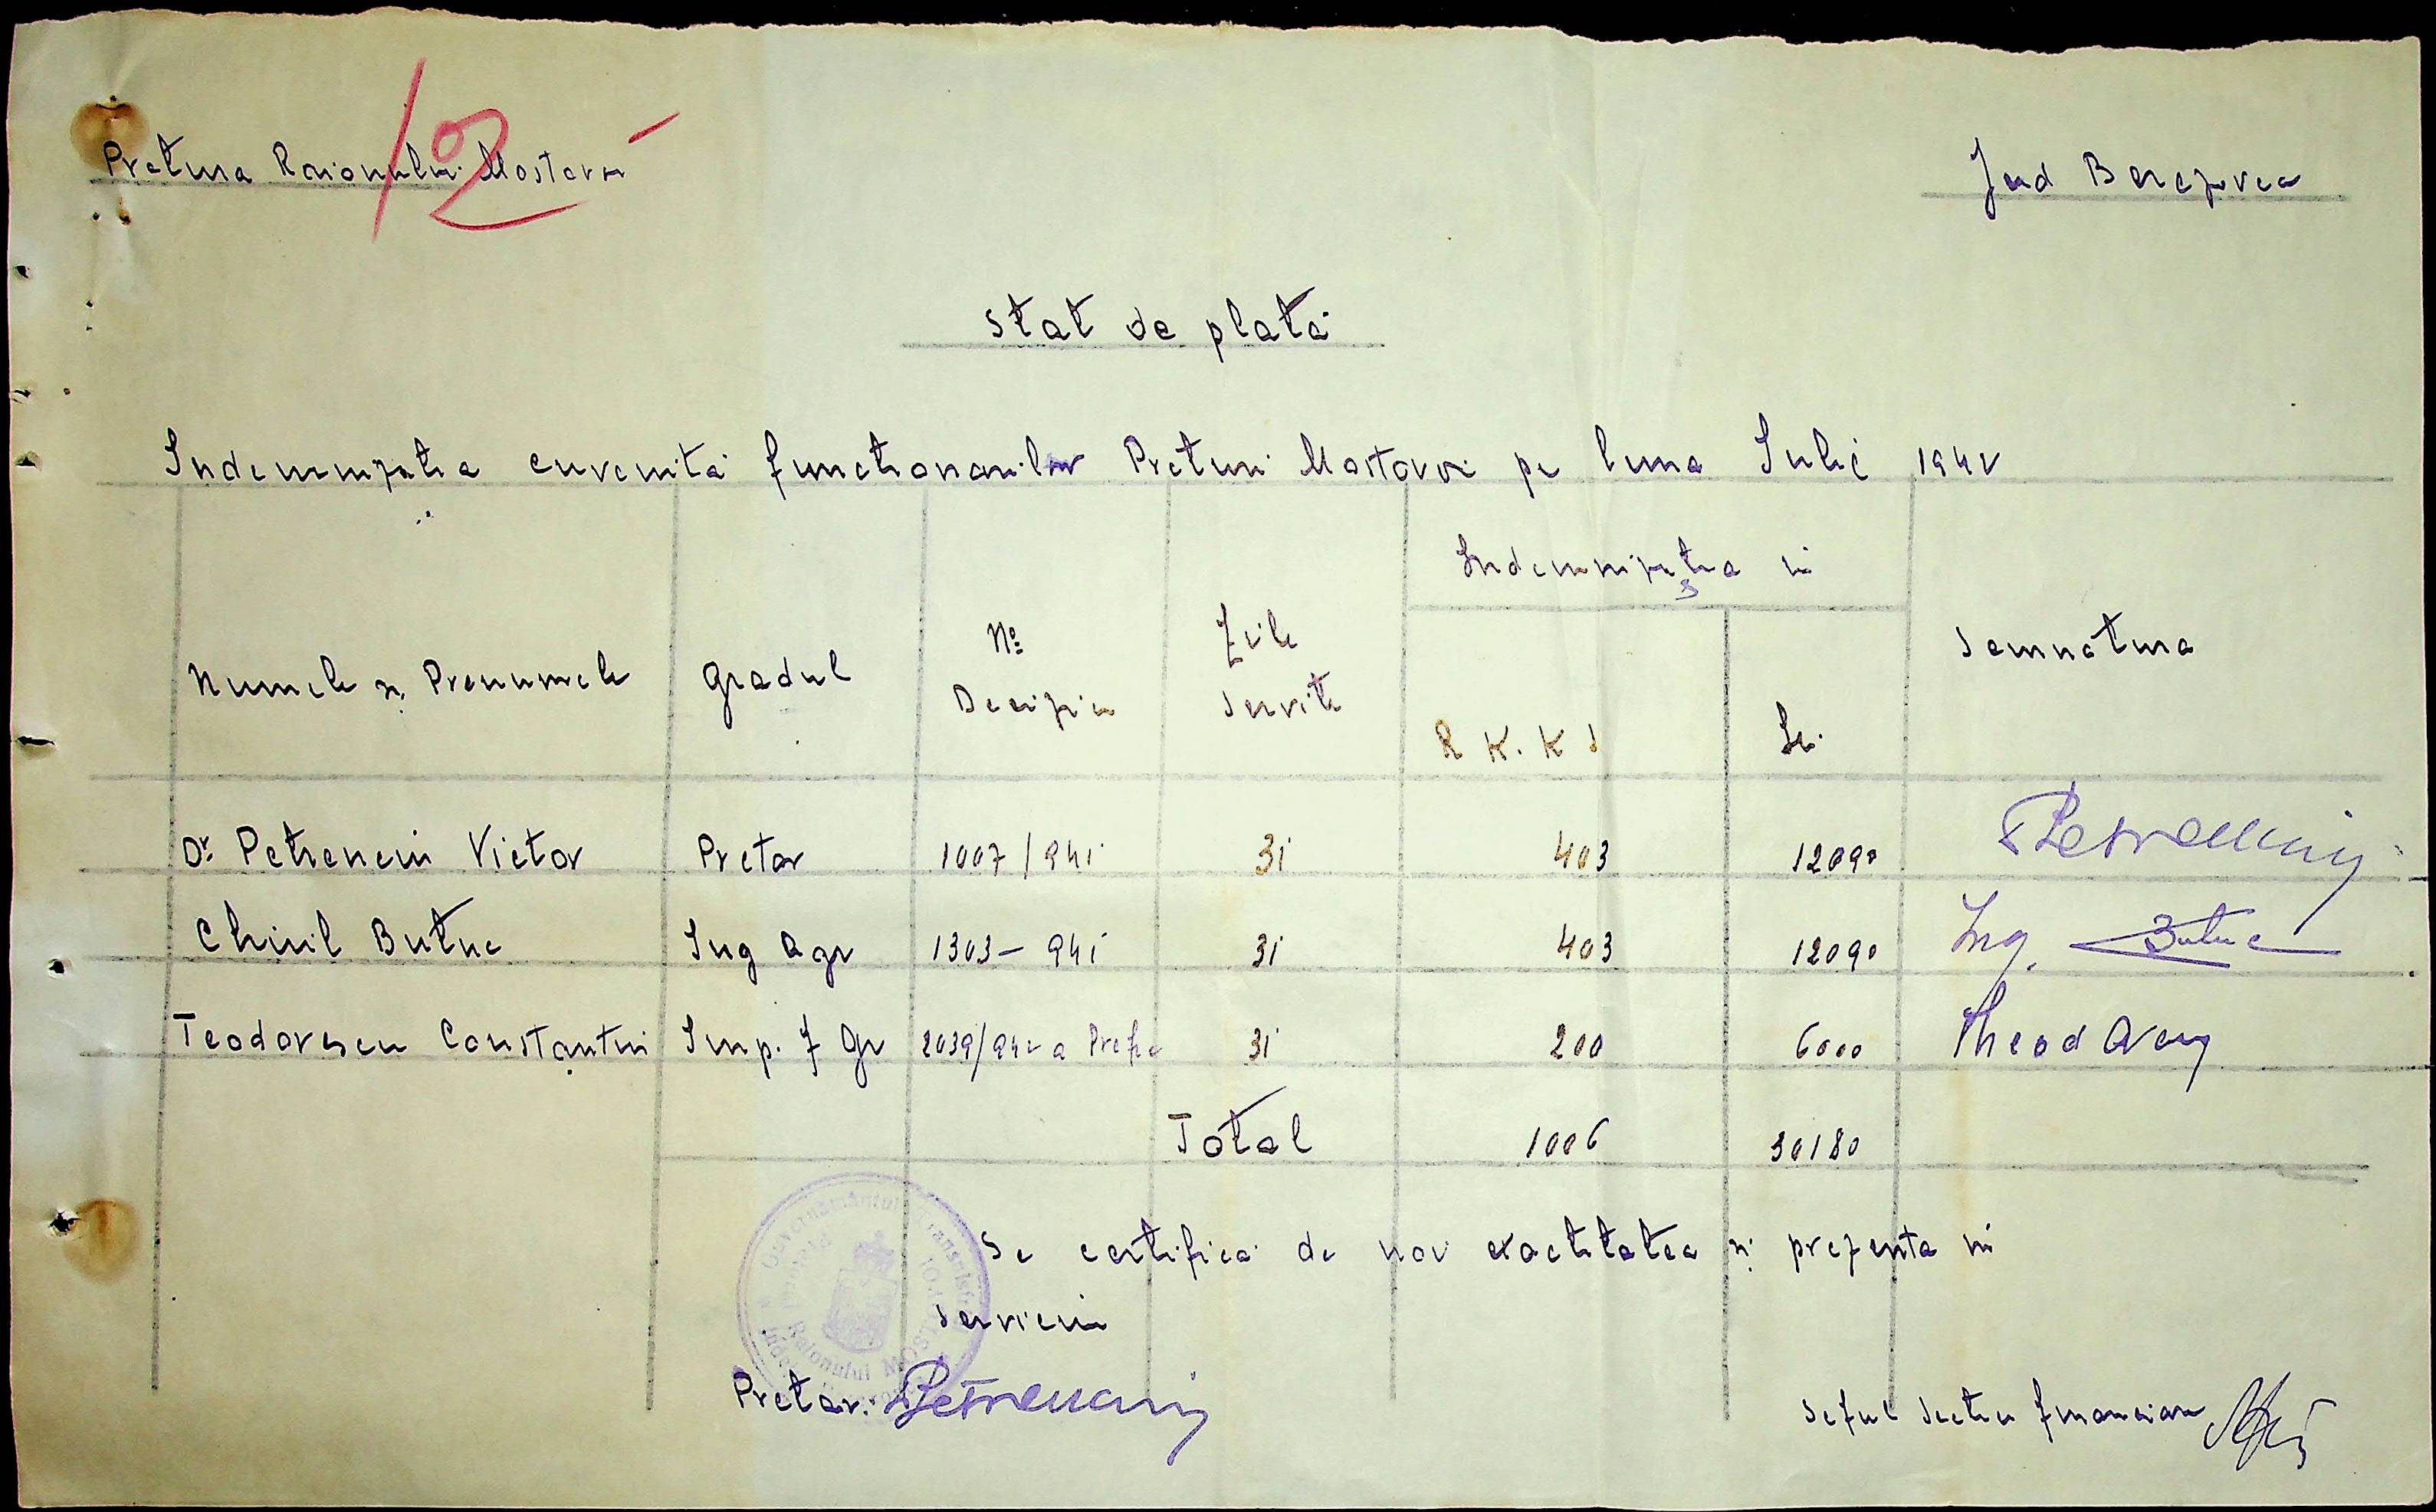 102
Pretura Raionului Mostovoi
Jud Berezovca
Stat de plată
Indemnizatia cuvenită functionarilor Preturi Mostovoi pe luna Iulie 1942
Indemnizatia in
Numele si Prenumele Gradul No Decizia Zile Servite R K.K S Lei Semnătura
Dr Petrenciu Victor Pretor 1007/941 31 403 12090
Chiril Butuc Ing Agr 1303-941 31 403 12090 Ing. Butuc
Teodorescu Constantin Imp. J Gr 2039/942 a Prefe 31 200 6000
Total 1006 30180
Se certifică de noi exactitatea si prezenta in
Serviciu
Guvernământul Transnistriei
Raionului MOSTOVOI
Pretor.
Seful Sectiei financiare